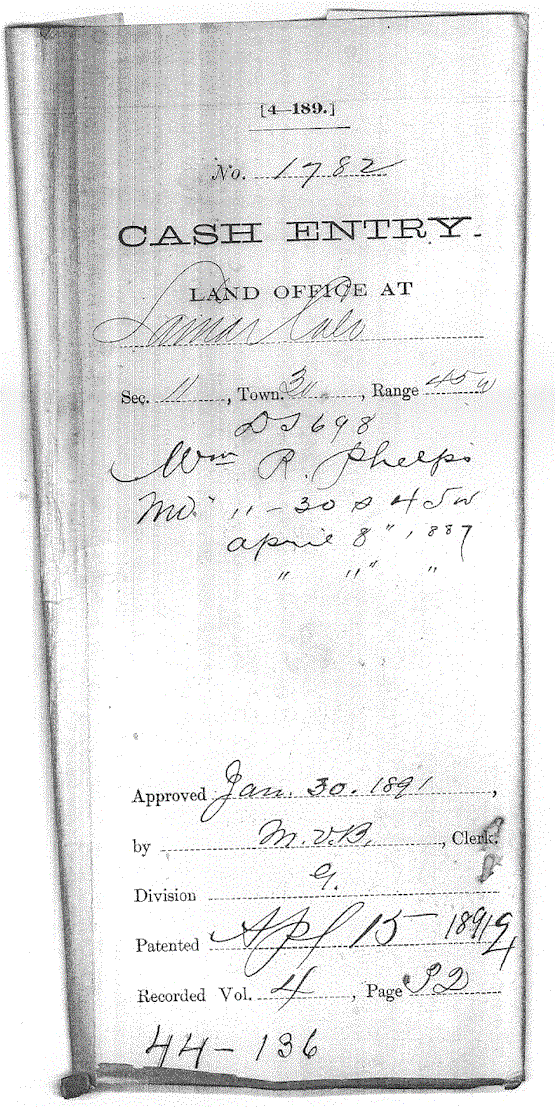 [4—189.]
No. 1782
CASH ENTRY.
LAND OFFICE AT
Lamar Colo
Sec. 11, Town. 30, Range 45 W
DS 698
Wm R. Phelps
11 - 30 S 45 W
April 8", 1887
" 11" "
Approved Jan. 30. 1891,
by M.V.B., Clerk.
Division G.
Patented Apl 15 - 1891
Recorded Vol. 4, Page 92
44 - 136